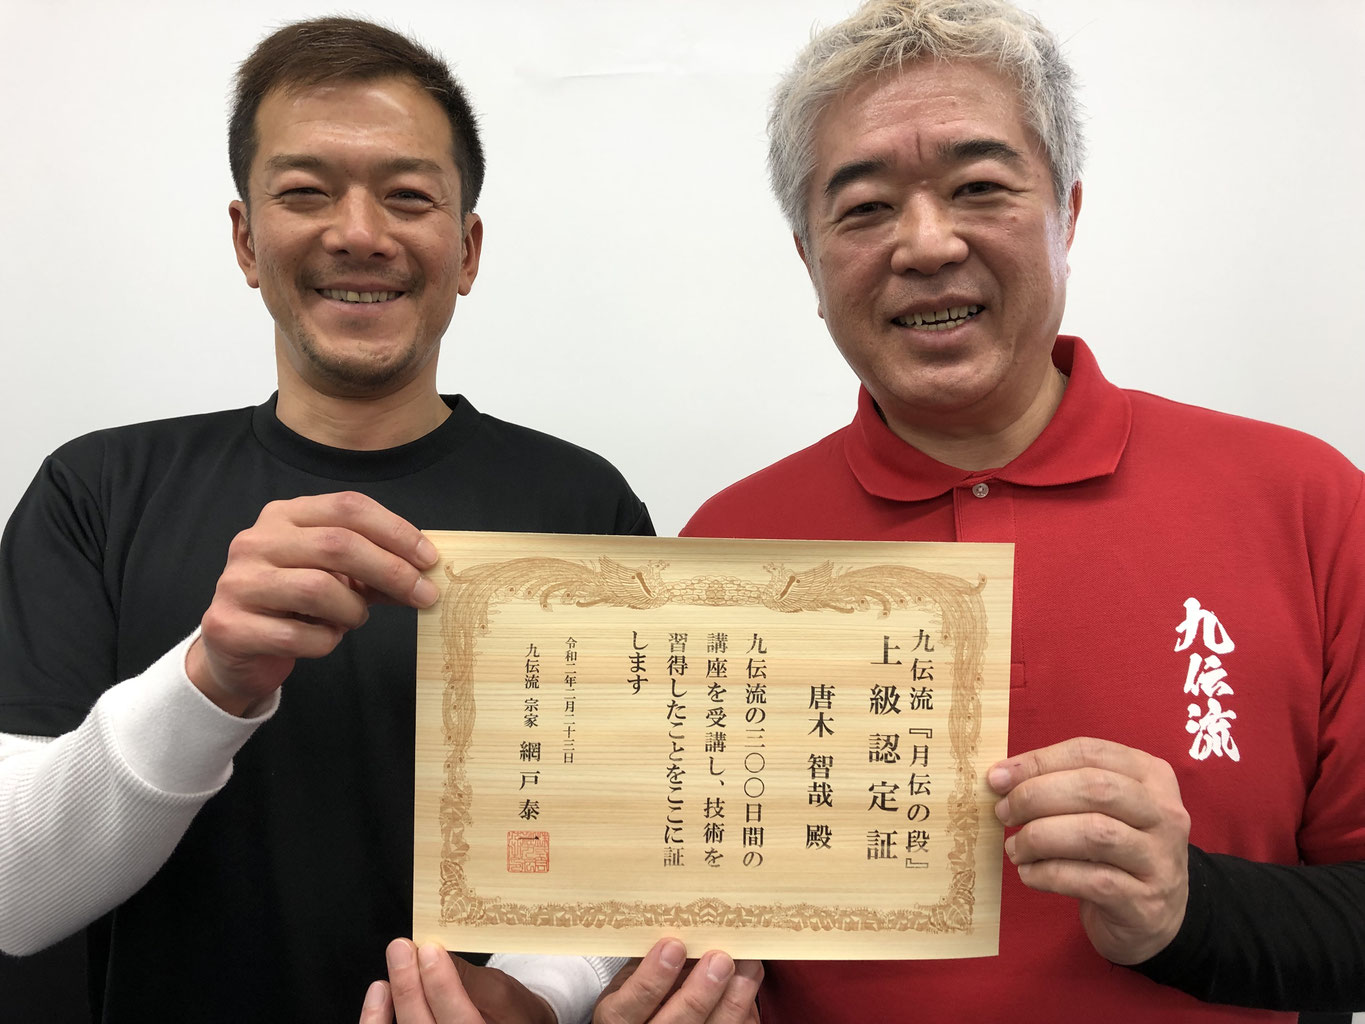 九伝流『月伝の段』
上級認定証
唐木 智哉 殿
九伝流の三〇〇日間の
講座を受講し、技術を
習得したことをここに証
します
令和二年二月二十三日
九伝流 宗家 網戸 泰一
九伝流